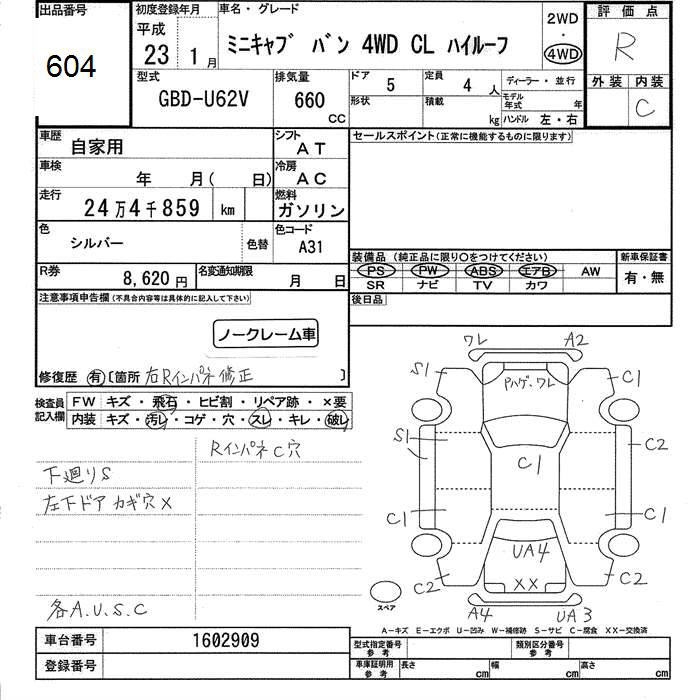 出品番号
604
初度登録年月
平成
23 1 月
車名・グレード
ミニキャブ バン 4WD CL ハイルーフ
2WD
・
4WD
評価点
R
外装 内装
C
型式
GBD-U62V
排気量
660
CC
ドア 5
定員 4 人
ディーラー・並行
形状
積載 kg
モデル年式 年
ハンドル 左・右
車歴
自家用
シフト
AT
セールスポイント(正常に機能するものに限ります)
車検
年 月( 日)
冷房
AC
走行
24万4千859 km
燃料
ガソリン
色
シルバー
色替
色コード
A31
装備品 (純正品に限り○をつけてください)
PS PW ABS エアB AW
SR ナビ TV カワ
新車保証書
有・無
R券
8,620円
名変通知期限
月 日
後日品
注意事項申告欄(不具合内容等は具体的に記入して下さい)
ノークレーム車
修復歴 有 [箇所 右Rインパネ修正 ]
検査員記入欄
FW キズ・飛石・ヒビ割・リペア跡・×要
内装 キズ・汚レ・コゲ・穴・スレ・キレ・破レ
Rインパネ C穴
下廻りS
左下ドア カギ穴X
各A.U.S.C
ワレ A2
S1 Pハゲ・ワレ C1
S1 C1 C2
C1 C1
UA4
C2 XX C2
A4 UA3
スペア
A-キズ E-エクボ U-凹み W-補修跡 S-サビ C-腐食 XX-交換済
車台番号
1602909
登録番号
型式指定番号 参考
類別区分番号 参考
車庫証明用 参考
長さ cm
幅 cm
高さ cm